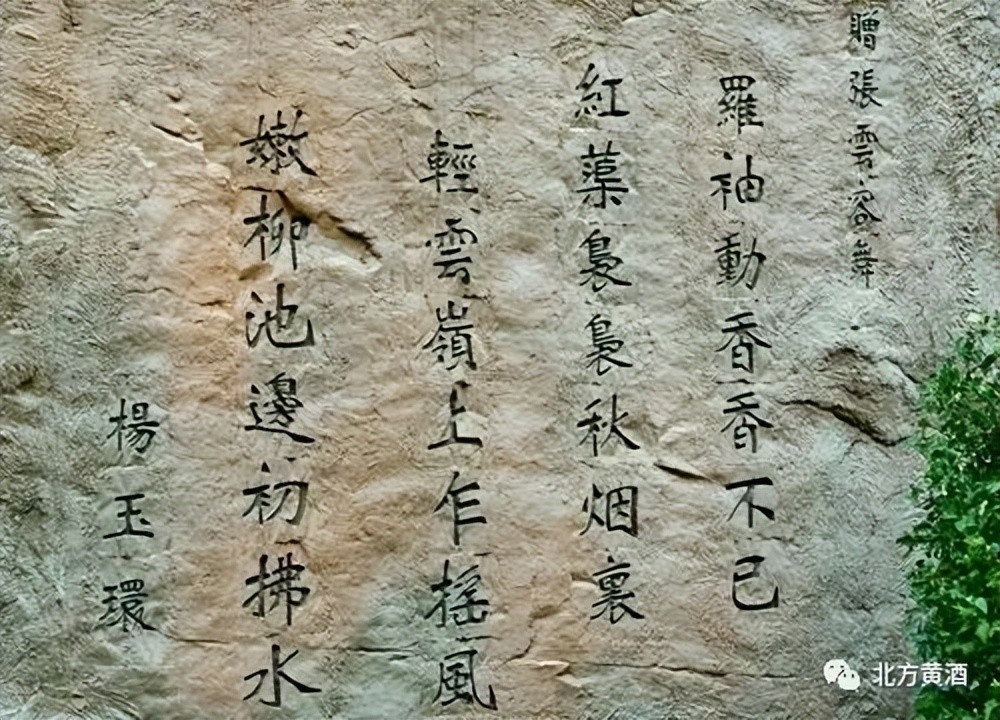 贈張雲容舞
羅袖動香香不已
紅蕖裊裊秋烟裏
輕雲嶺上乍搖風
嫩柳池邊初拂水
楊玉環
北方黄酒